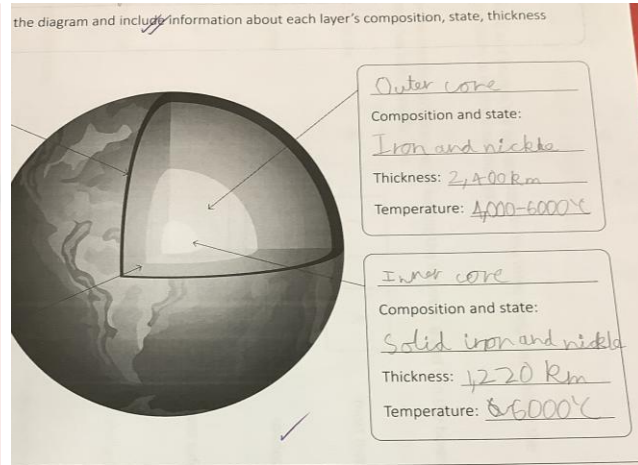 the diagram and include information about each layer's composition, state, thickness
Outer core
Composition and state:
Iron and nickle
Thickness: 2,400km
Temperature: 4,000-6000°C
Inner core
Composition and state:
Solid iron and nickle
Thickness: 1,220 km
Temperature: 6000°C